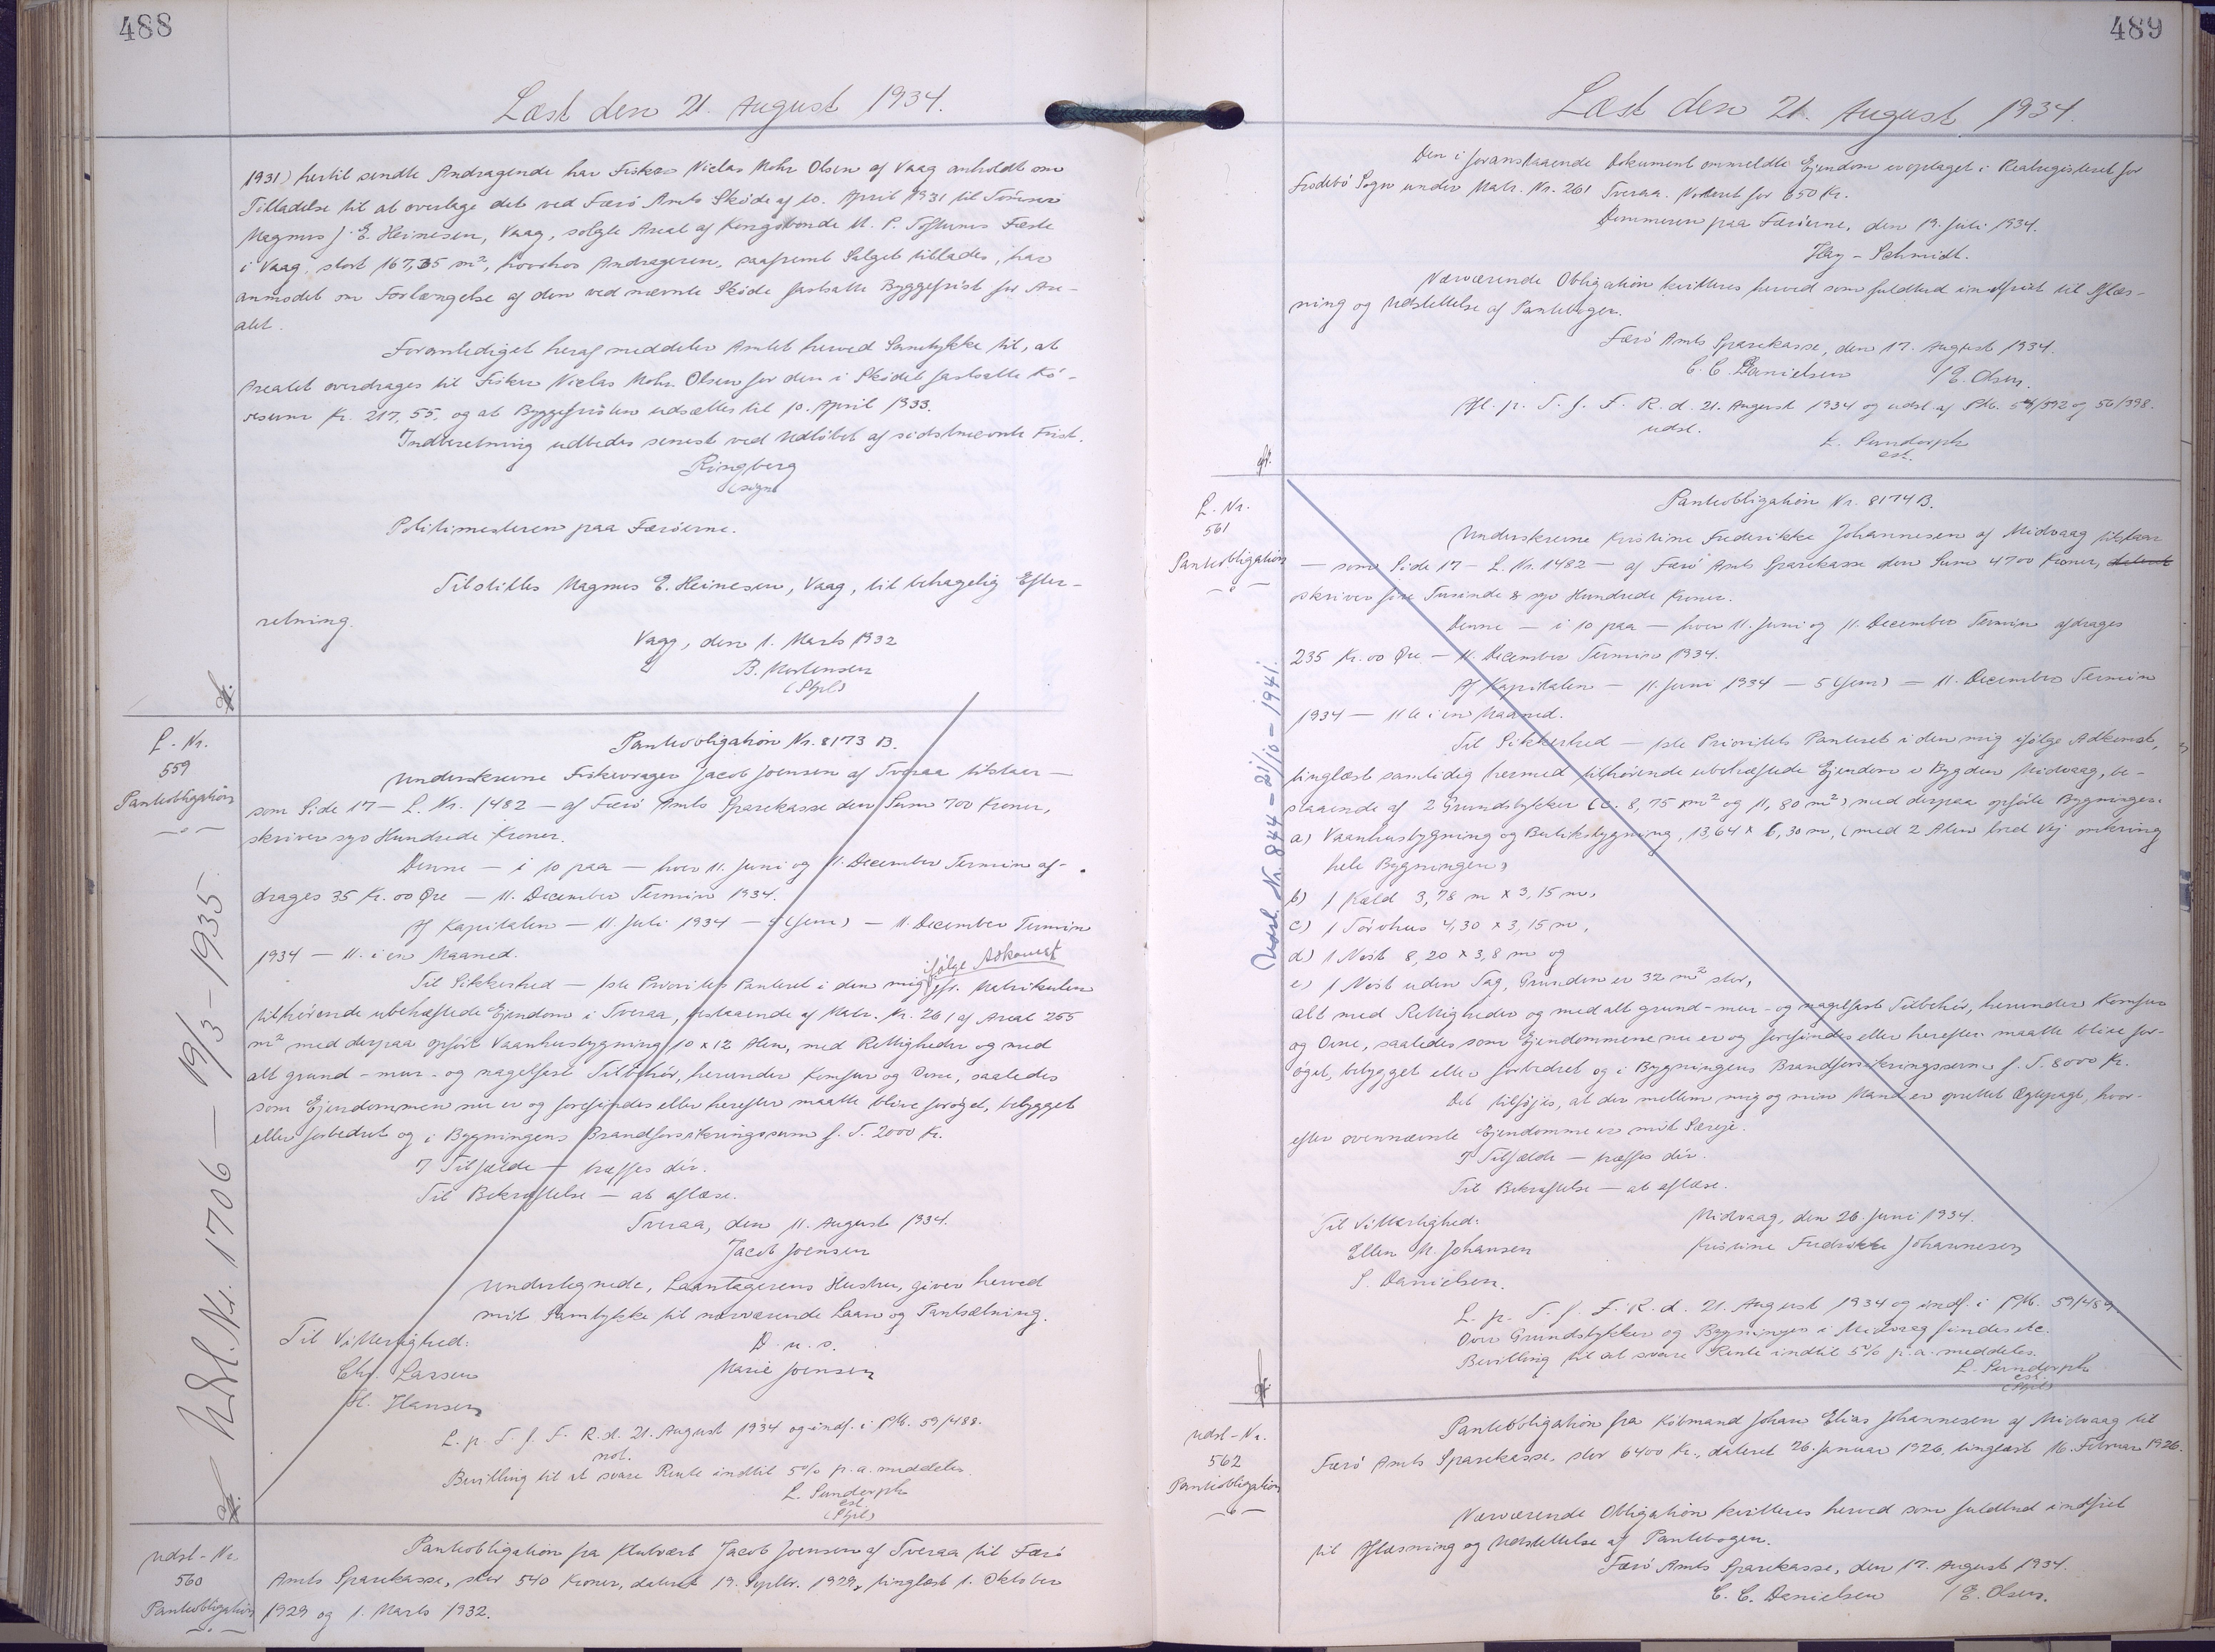 488
Læst den 21. August 1934.
1931) hertil sendte Andragende har Fisker Niclas Mohr Olsen af Vaag anholdt om
Tilladelse til at overtage det ved Færö Amts Sköde af 10. April 1931 til Tömrer
Magnus J. E. Heinesen, Vaag, solgte Areal af Kongsbonde M. P. Toftums Fæste
i Vaag, stort 167,35 m², hvorhos Andrageren, saafremt Salget tillades, har
anmodet om Forlængelse af den ved nævnte Sköde fastsatte Byggefrist for Are-
alet.
Foranlediget heraf meddeler Amtet herved Samtykke til, at
Arealet overdrages til Fisker Niclas Mohr Olsen for den i Sködet fastsatte Kö-
besum Kr. 217,55 og at Byggefristen udsættes til 10. April 1933.
Indberetning udbedes senest ved Udlöbet af sidstnævnte Frist.
Ringberg
(sign)
Politimesteren paa Færöerne.
Tilstilles Magnus E. Heinesen, Vaag, til behagelig Efter-
retning.
Vaag, den 1. Marts 1932
B. Mortensen
(Stpl)
L. Nr.
559
Pantobligation
Udsl. Nr. 1706 — 19/3 - 1935.
Pantobligation Nr. 8173 B.
Underskrevne Fiskevrager Jacob Joensen af Tveraa tilstaar —
som Side 17 — L. Nr. 1482 — af Færö Amts Sparekasse den Sum 700 Kroner,
skriver syv Hundrede Kroner.
Denne — i 10 paa — hver 11. Juni og 11. December Termin af-
drages 35 Kr. 00 Øre — 11. December Termin 1934.
Af Kapitalen — 11. Juli 1934 — 5 (fem) — 11. December Termin
1934 — 11. i en Maaned.
ifölge Adkomst
Til Sikkerhed — 1ste Prioritets Panteret i den mig jfr. Matrikulen
tilhörende ubehæftede Ejendom i Tveraa, bestaaende af Matr. Nr. 261 af Areal 255
m² med derpaa opfört Vaanhusbygning 10 x 12 Alen, med Rettigheder og med
alt grund- mur- og nagelfast Tilbehör, herunder Komfur og Ovne, saaledes
som Ejendommen nu er og forefindes eller herefter maatte blive forøget, bebygget
eller forbedret og i Bygningens Brandforsikringssum f. T. 2000 Kr.
I Tilfælde — træffes dér.
Til Bekræftelse — at aflæse.
Tveraa, den 11. August 1934.
Jacob Joensen
Undertegnede, Laantagerens Hustru, giver herved
mit Samtykke til nærværende Laan og Pantsætning.
Til Vitterlighed:
D. u. s.
Chr. Larsen
Marie Joensen
H. Hansen
L. p. T. f. F. R. d. 21. August 1934 og indf. i Ptb. 59/488.
not.
Bevilling til at svare Rente indtil 5% p.a. meddeles.
L. Sundorph
cst.
(Stpl)
Udsl-Nr.
560
Pantobligation
Pantobligation fra Klubvært Jacob Joensen af Tveraa til Færö
Amts Sparekasse, stor 540 Kroner, dateret 19. Septbr. 1929, tinglæst 1. Oktober
1929 og 1. Marts 1932.
489
Læst den 21. August 1934.
Den i foranstaaende Dokument ommeldte Ejendom er optaget i Realregisteret for
Frodebö Sogn under Matr. Nr. 261 Tveraa. Vurderet for 650 Kr.
Dommeren paa Færöerne, den 19. Juli 1934.
Hay-Schmidt.
Nærværende Obligation kvitteres herved som fuldtud indfriet til Aflæs-
ning og Udslettelse af Pantebogen.
Færö Amts Sparekasse, den 17. August 1934.
C. C. Danielsen /E. Olsen.
Afl. p. T. f. F. R. d. 21. August 1934 og udsl. af Ptb. 54/392 og 56/398.
udsl.
L. Sundorph
cst.
L. Nr.
561
Pantobligation
Udsl. Nr. 844 - 21/10 - 1941.
Pantobligation Nr. 8174 B.
Underskrevne Kristine Frederikke Johannesen af Midvaag tilstaar
— som Side 17 — L. Nr. 1482 — af Færö Amts Sparekasse den Sum 4700 Kroner,
skriver fire Tusinde & syv Hundrede Kroner.
Denne — i 10 paa — hver 11. Juni og 11. December Termin afdrages
235 Kr. 00 Øre — 11. December Termin 1934.
Af Kapitalen — 11. Juni 1934 — 5 (fem) — 11. December Termin
1934 — 11te i en Maaned.
Til Sikkerhed — 1ste Prioritets Panteret i den mig ifölge Adkomst,
tinglæst samtidig hermed tilhørende ubehæftede Ejendom i Bygden Midvaag, be-
staaende af 2 Grundstykker (c. 8,75 m² og 11,80 m²) med derpaa opförte Bygninger:
a) Vaanhusbygning og Butiksbygning, 13,64 x 6,30 m, (med 2 Alen bred Vej omkring
hele Bygningen)
b) 1 Kæld 3,78 m x 3,15 m,
c) 1 Törvhus 4,30 x 3,15 m,
d) 1 Nöst 8,20 x 3,8 m og
e) 1 Nöst uden Tag, Grunden er 32 m² stor,
alt med Rettigheder og med alt grund- mur- og nagelfast Tilbehör, herunder Komfur
og Ovne, saaledes som Ejendommene nu er og forefindes eller herefter maatte blive for-
öget, bebygget eller forbedret og i Bygningens Brandforsikringssum f. T. 8000 Kr.
Det tilföjes, at der mellem mig og min Mand er oprettet Ægtepagt, hvor-
efter ovennævnte Ejendomme er mit Særeje.
I Tilfælde — træffes dér.
Til Bekræftelse — at aflæse.
Til Vitterlighed:
Midvaag, den 26. Juni 1934.
Ellen M. Johansen
Kristine Fredrikke Johannesen
S. Danielsen.
L. p. T. f. F. R. d. 21. August 1934 og indf. i Ptb. 59/489.
Over Grundstykker og Bygninger i Midvaag findes etc.
Bevilling til at svare Rente indtil 5% p.a. meddeles.
L. Sundorph
cst.
(Stpl)
Udsl-Nr.
562
Pantobligation
Pantobligation fra Købmand Johan Elias Johannesen af Midvaag til
Færö Amts Sparekasse, stor 6400 Kr., dateret 26. Januar 1926, tinglæst 16. Februar 1926.
Nærværende Obligation kvitteres herved som fuldtud indfriet
til Aflæsning og Udslettelse af Pantebogen.
Færö Amts Sparekasse, den 17. August 1934.
C. C. Danielsen /E. Olsen.